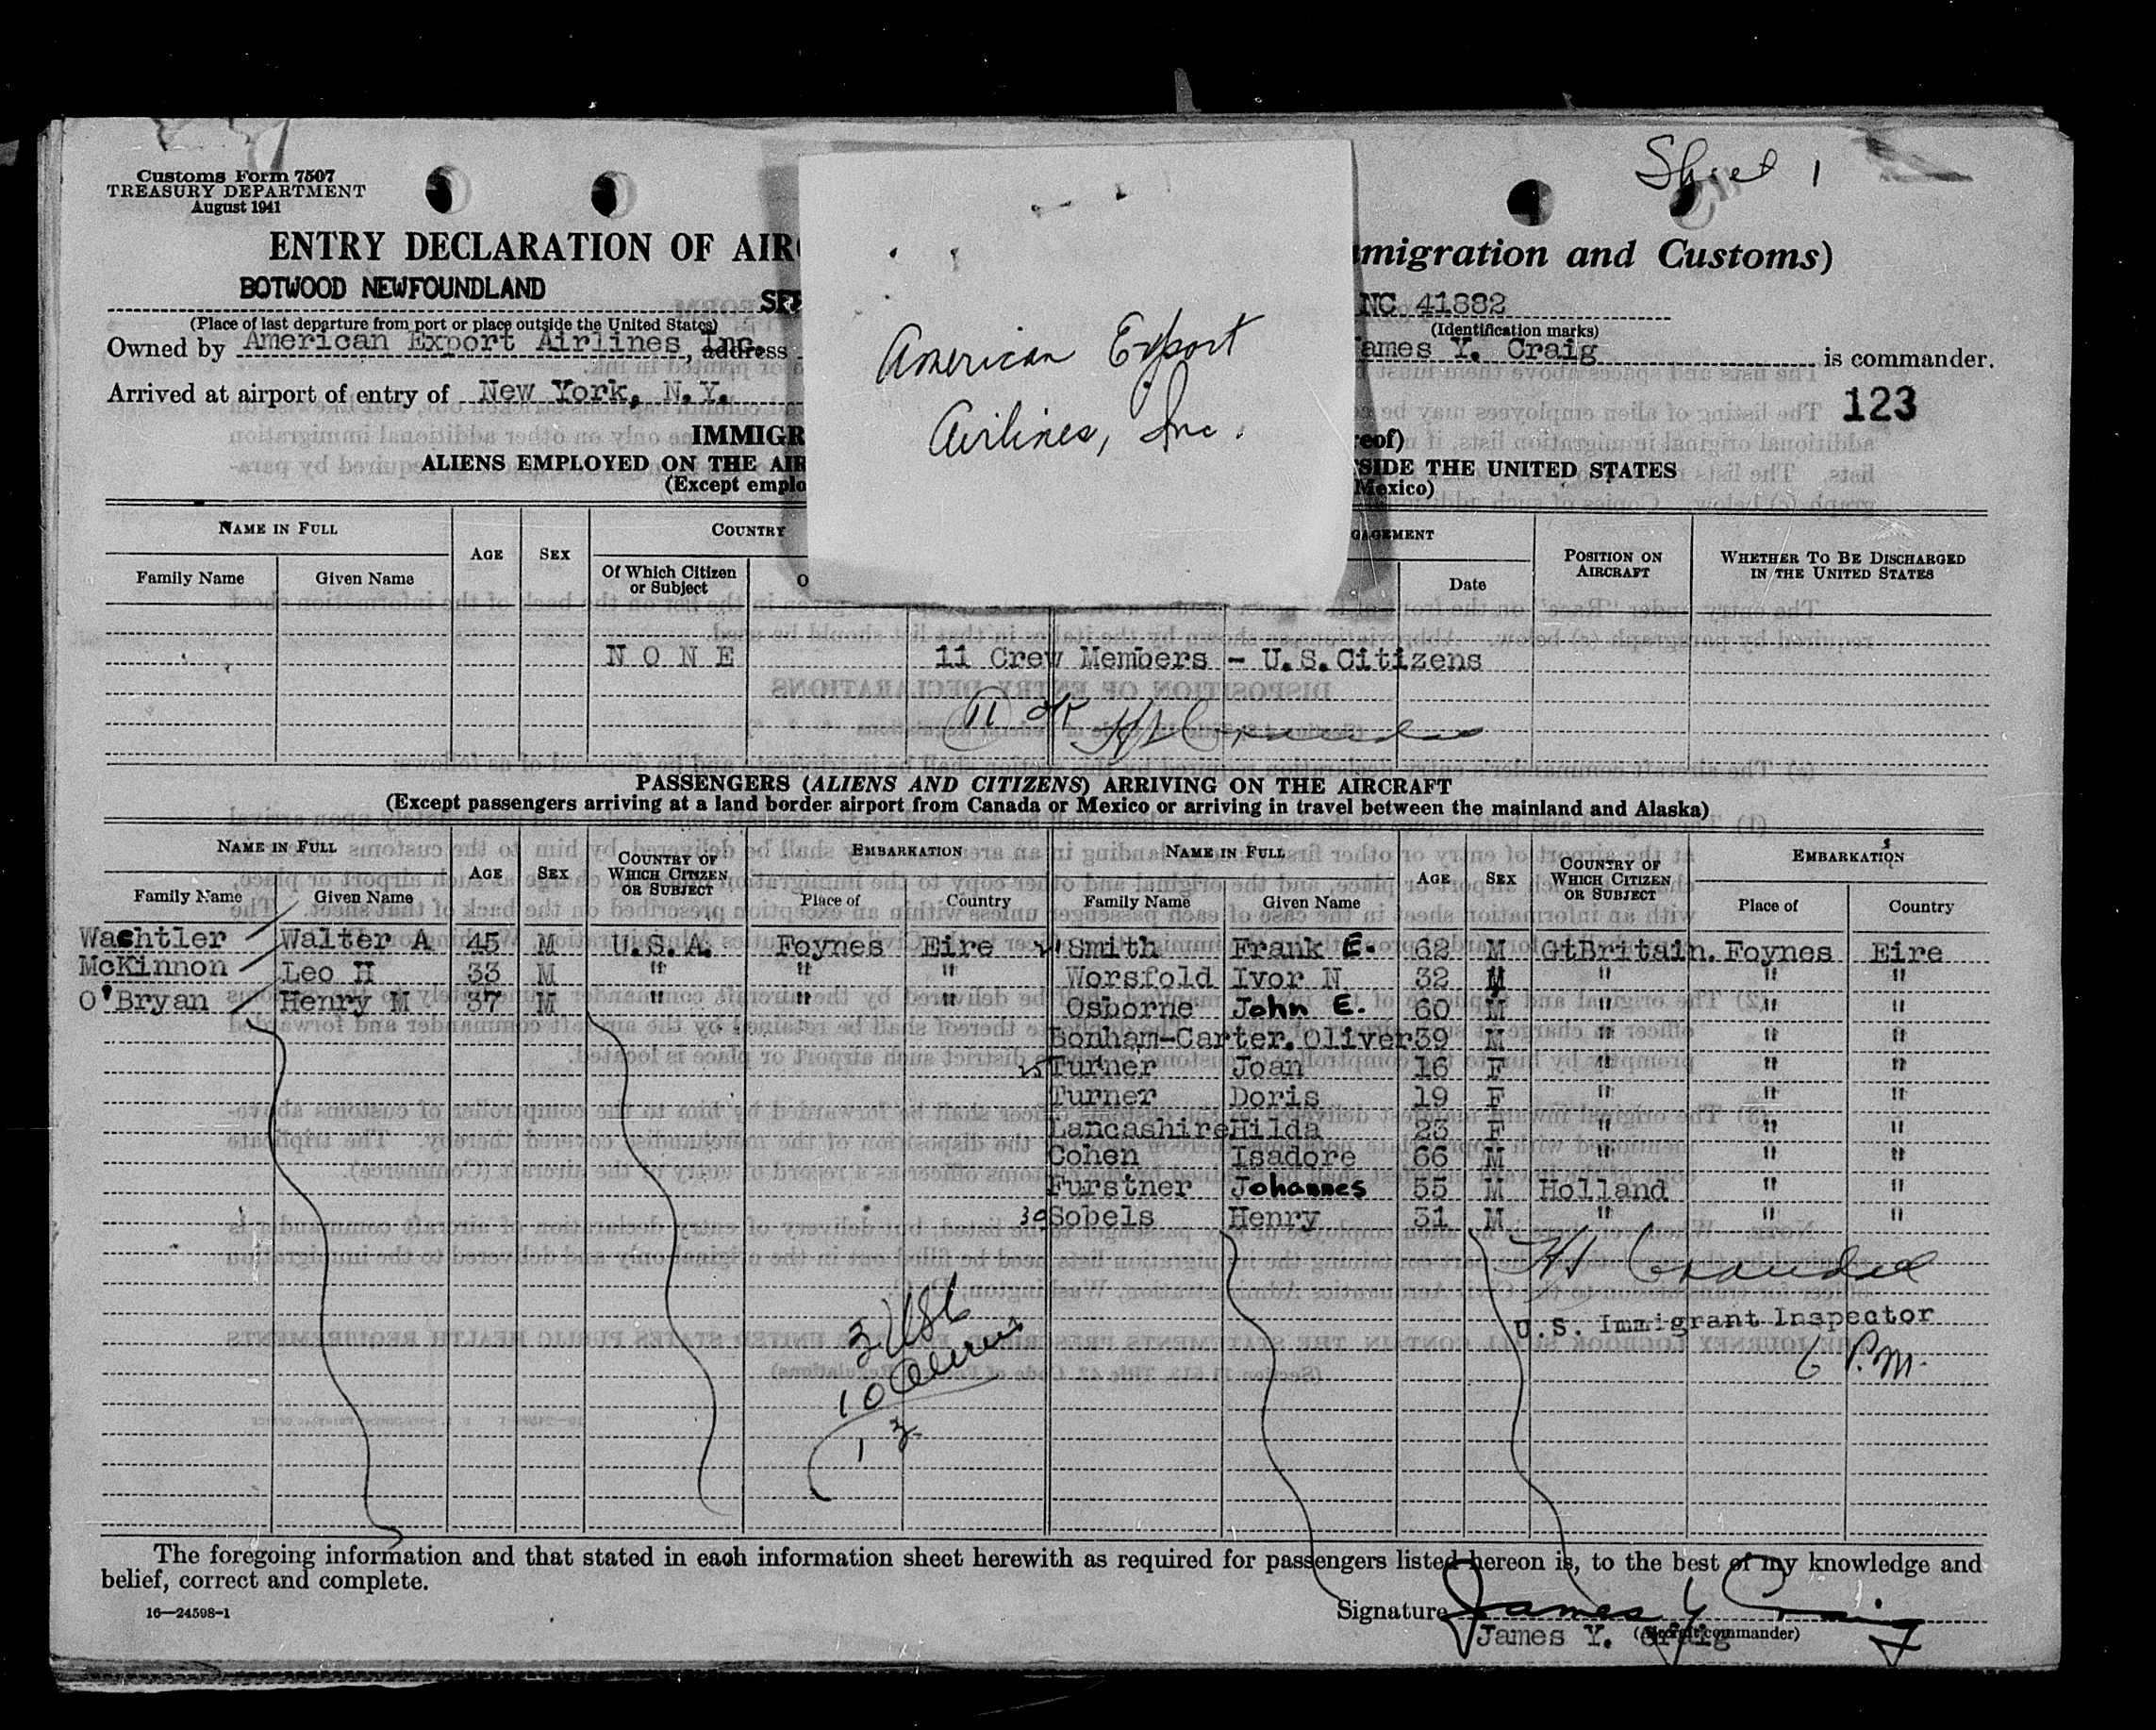 Sheet 1
Customs Form 7507
TREASURY DEPARTMENT
August 1941
ENTRY DECLARATION OF AIRC
mmigration and Customs)
BOTWOOD NEWFOUNDLAND
SE
NC 41882
(Place of last departure from port or place outside the United States)
(Identification marks)
Owned by American Export Airlines Inc., address
ames Y. Craig is commander.
Arrived at airport of entry of New York, N.Y.
123
American Export
Airlines, Inc.
IMMIGR
reof)
ALIENS EMPLOYED ON THE AIR
SIDE THE UNITED STATES
(Except emplo
Mexico)
NAME IN FULL AGE SEX COUNTRY GAGEMENT POSITION ON AIRCRAFT WHETHER TO BE DISCHARGED IN THE UNITED STATES
Family Name Given Name Of Which Citizen or Subject O Date
NONE 11 Crew Members - U.S.Citizens
11 OK
PASSENGERS (ALIENS AND CITIZENS) ARRIVING ON THE AIRCRAFT
(Except passengers arriving at a land border airport from Canada or Mexico or arriving in travel between the mainland and Alaska)
NAME IN FULL AGE SEX COUNTRY OF WHICH CITIZEN OR SUBJECT EMBARKATION NAME IN FULL AGE SEX COUNTRY OF WHICH CITIZEN OR SUBJECT EMBARKATION
Family Name Given Name Place of Country Family Name Given Name Place of Country
Wachtler Walter A 45 M U.S.A. Foynes Eire 21 Smith Frank E. 62 M GtBritain. Foynes Eire
McKinnon Leo H 33 M " " " Worsfold Ivor N 32 M " " "
O'Bryan Henry M 37 M " " " Osborne John E. 60 M " " "
Bonham-Carter. Oliver 39 M " " "
25 Turner Joan 16 F " " "
Turner Doris 19 F " " "
Lancashire Hilda 23 F " " "
Cohen Isadore 66 M " " "
Furstner Johannes 55 M Holland " "
30 Sobels Henry 31 M " " "
3 USC
10 Aliens
13
U.S. Immigrant Inspector
6 P.M.
The foregoing information and that stated in each information sheet herewith as required for passengers listed hereon is, to the best of my knowledge and
belief, correct and complete.
16—24598-1
Signature James Y Craig
James Y. Craig (Aircraft commander)